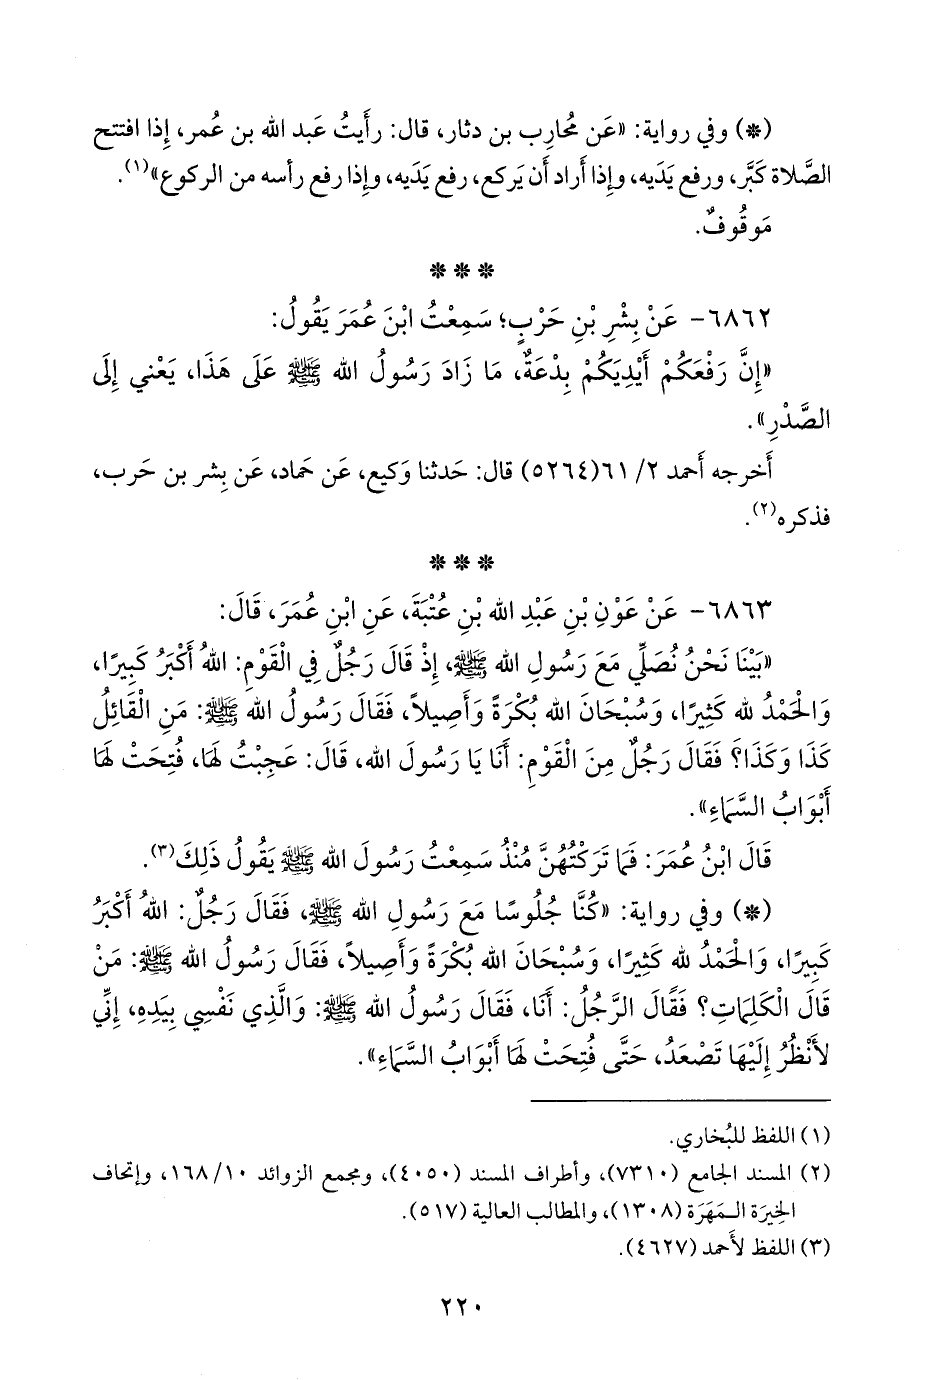 (*) وفي رواية: «عَن مُحارِب بن دثار، قال: رأَيتُ عَبد الله بن عُمر، إِذا افتتح
الصَّلاة كَبَّر، ورفع يَدَيه، وإِذا أَراد أَن يَركع، رفع يَدَيه، وإِذا رفع رأسه من الركوع»(١).
مَوقُوفٌ.
* * *
٦٨٦٢- عَنْ بِشْرِ بْنِ حَرْبٍ؛ سَمِعْتُ ابْنَ عُمَرَ يَقُولُ:
«إِنَّ رَفْعَكُمْ أَيْدِيَكُمْ بِدْعَةٌ، مَا زَادَ رَسُولُ الله ﷺ عَلَى هَذَا، يَعْني إِلَى
الصَّدْرِ».
أَخرجه أَحمد ٢/ ٦١(٥٢٦٤) قال: حَدثنا وَكيع، عَن حَماد، عَن بِشر بن حَرب،
فذكره(٢).
* * *
٦٨٦٣- عَنْ عَوْنِ بْنِ عَبْدِ الله بْنِ عُتْبَةَ، عَنِ ابْنِ عُمَرَ، قَالَ:
«بَيْنَا نَحْنُ نُصَلِّي مَعَ رَسُولِ الله ﷺ، إِذْ قَالَ رَجُلٌ فِي الْقَوْمِ: اللهُ أَكْبَرُ كَبِيرًا،
وَالْحَمْدُ لله كَثِيرًا، وَسُبْحَانَ الله بُكْرَةً وَأَصِيلاً، فَقَالَ رَسُولُ الله ﷺ: مَنِ الْقَائِلُ
كَذَا وَكَذَا؟ فَقَالَ رَجُلٌ مِنَ الْقَوْمِ: أَنَا يَا رَسُولَ الله، قَالَ: عَجِبْتُ لَهَا، فُتِحَتْ لَهَا
أَبْوَابُ السَّمَاءِ».
قَالَ ابْنُ عُمَرَ: فَمَا تَرَكْتُهُنَّ مُنْذُ سَمِعْتُ رَسُولَ الله ﷺ يَقُولُ ذَلِكَ(٣).
(*) وفي رواية: «كُنَّا جُلُوسًا مَعَ رَسُولِ الله ﷺ، فَقَالَ رَجُلٌ: اللهُ أَكْبَرُ
كَبِيرًا، وَالْحَمْدُ لله كَثِيرًا، وَسُبْحَانَ الله بُكْرَةً وَأَصِيلاً، فَقَالَ رَسُولُ الله ﷺ: مَنْ
قَالَ الْكَلِمَاتِ؟ فَقَالَ الرَّجُلُ: أَنَا، فَقَالَ رَسُولُ الله ﷺ: وَالَّذِي نَفْسِي بِيَدِهِ، إِنِّي
لأَنْظُرُ إِلَيْهَا تَصْعَدُ، حَتَّى فُتِحَتْ لَهَا أَبْوَابُ السَّمَاءِ».
(١) اللفظ للبُخاري.
(٢) المسند الجامع (٧٣١٠)، وأطراف المسند (٤٠٥٠)، ومجمع الزوائد ١٠/ ١٦٨، وإتحاف
الخِيرَة الـمَهَرَة (١٣٠٨)، والمطالب العالية (٥١٧).
(٣) اللفظ لأَحمد (٤٦٢٧).
٢٢٠